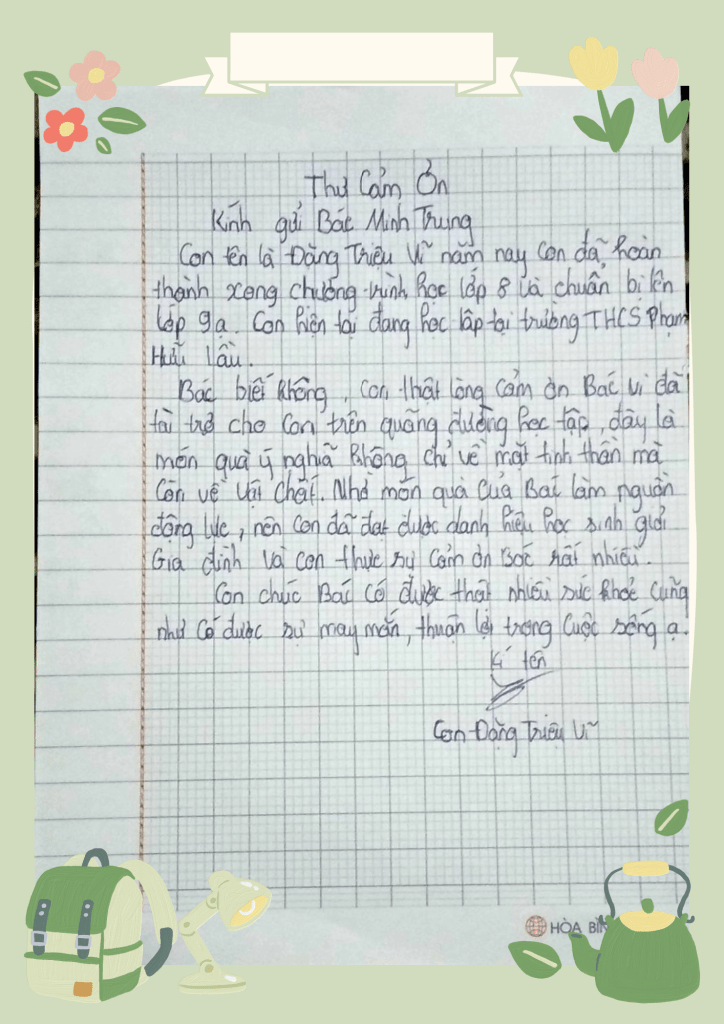 Thư Cảm Ơn
Kính gửi Bác Minh Trung
Con tên là Đặng Triệu Vĩ năm nay con đã hoàn
thành xong chương trình học lớp 8 và chuẩn bị lên
lớp 9a. Con hiện tại đang học lập tại trường THCS Phạm
Hữu Lầu.
Bác biết không, con thật lòng cảm ơn Bác vì đã
tài trợ cho con trên quãng đường học tập, đây là
món quà ý nghĩa không chỉ về mặt tinh thần mà
còn về vật chất. Nhờ món quà của Bác làm nguồn
động lực, nên con đã đạt được danh hiệu học sinh giỏi
Gia đình và con thực sự cảm ơn Bác rất nhiều.
Con chúc Bác có được thật nhiều sức khoẻ cũng
như có được sự may mắn, thuận lợi trong cuộc sống ạ.
Kí tên
Con Đặng Triệu Vĩ
HÒA BÌN